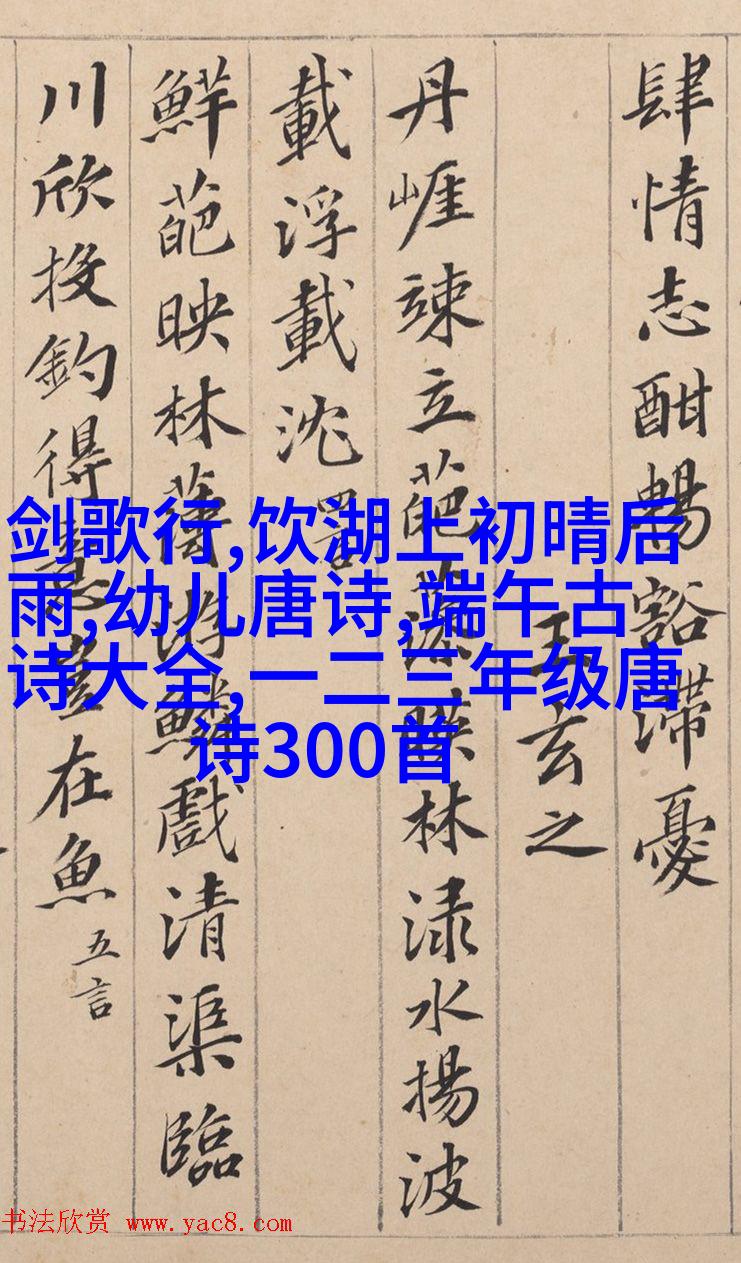 肆情志酣暢豁滯憂
王玄之
丹崕竦立葩藻暎林渌水揚波
載浮載沈 四言
鮮葩映林薄游鱗戲清渠臨
川欣投釣得意豈在魚 五言
剑歌行,饮湖上初晴后
雨,幼儿唐诗,端午古
诗大全,一二三年级唐
诗300首
书法欣赏 www.yac8.com